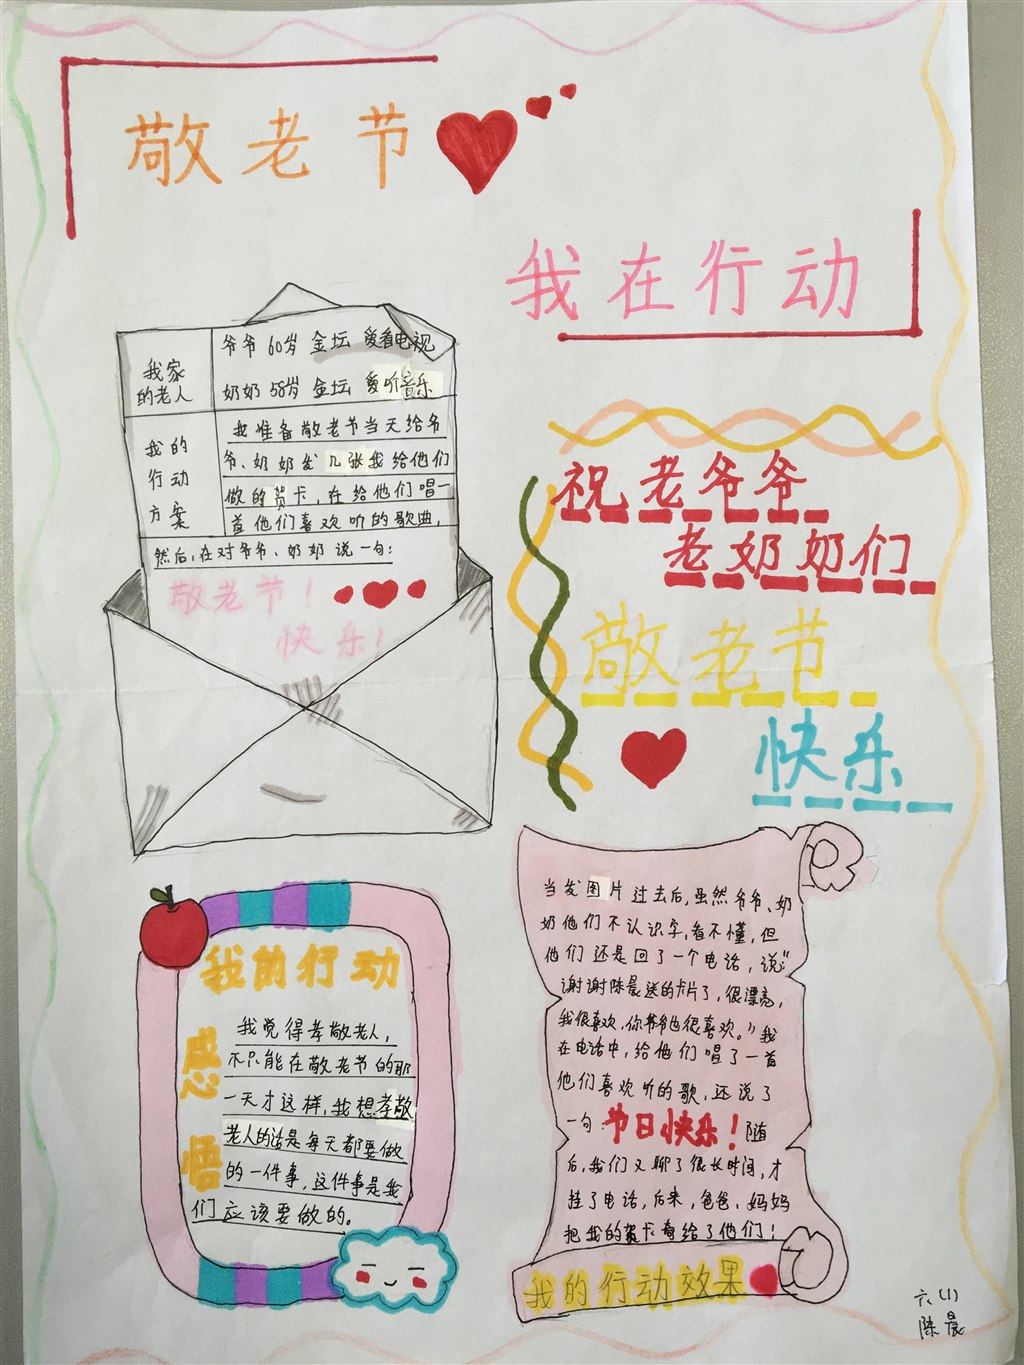 敬老节
我在行动
我家的老人
爷爷 60岁 金坛 爱看电视
奶奶 58岁 金坛 爱听音乐
我的行动方案
我准备敬老节当天给爷
爷、奶奶发几张我给他们
做的贺卡，在给他们唱一
首他们喜欢听的歌曲，
然后，在对爷爷、奶奶说一句：
敬老节！
快乐！
祝老爷爷
老奶奶们
敬老节
快乐
我的行动
感悟
我觉得孝敬老人，
不只能在敬老节的那
一天才这样，我想孝敬
老人的话是每天都要做
的一件事，这件事是我
们应该要做的。
当发图片过去后，虽然爷爷、奶
奶他们不认识字，看不懂，但
他们还是回了一个电话，说：“
谢谢陈晨送的卡片了，很漂亮，
我很喜欢，你爷爷也很喜欢。”我
在电话中，给他们唱了一首
他们喜欢听的歌，还说了
一句：节日快乐！随
后，我们又聊了很长时间，才
挂了电话，后来，爸爸、妈妈
把我的贺卡寄给了他们！
我的行动效果
六（1）
陈晨